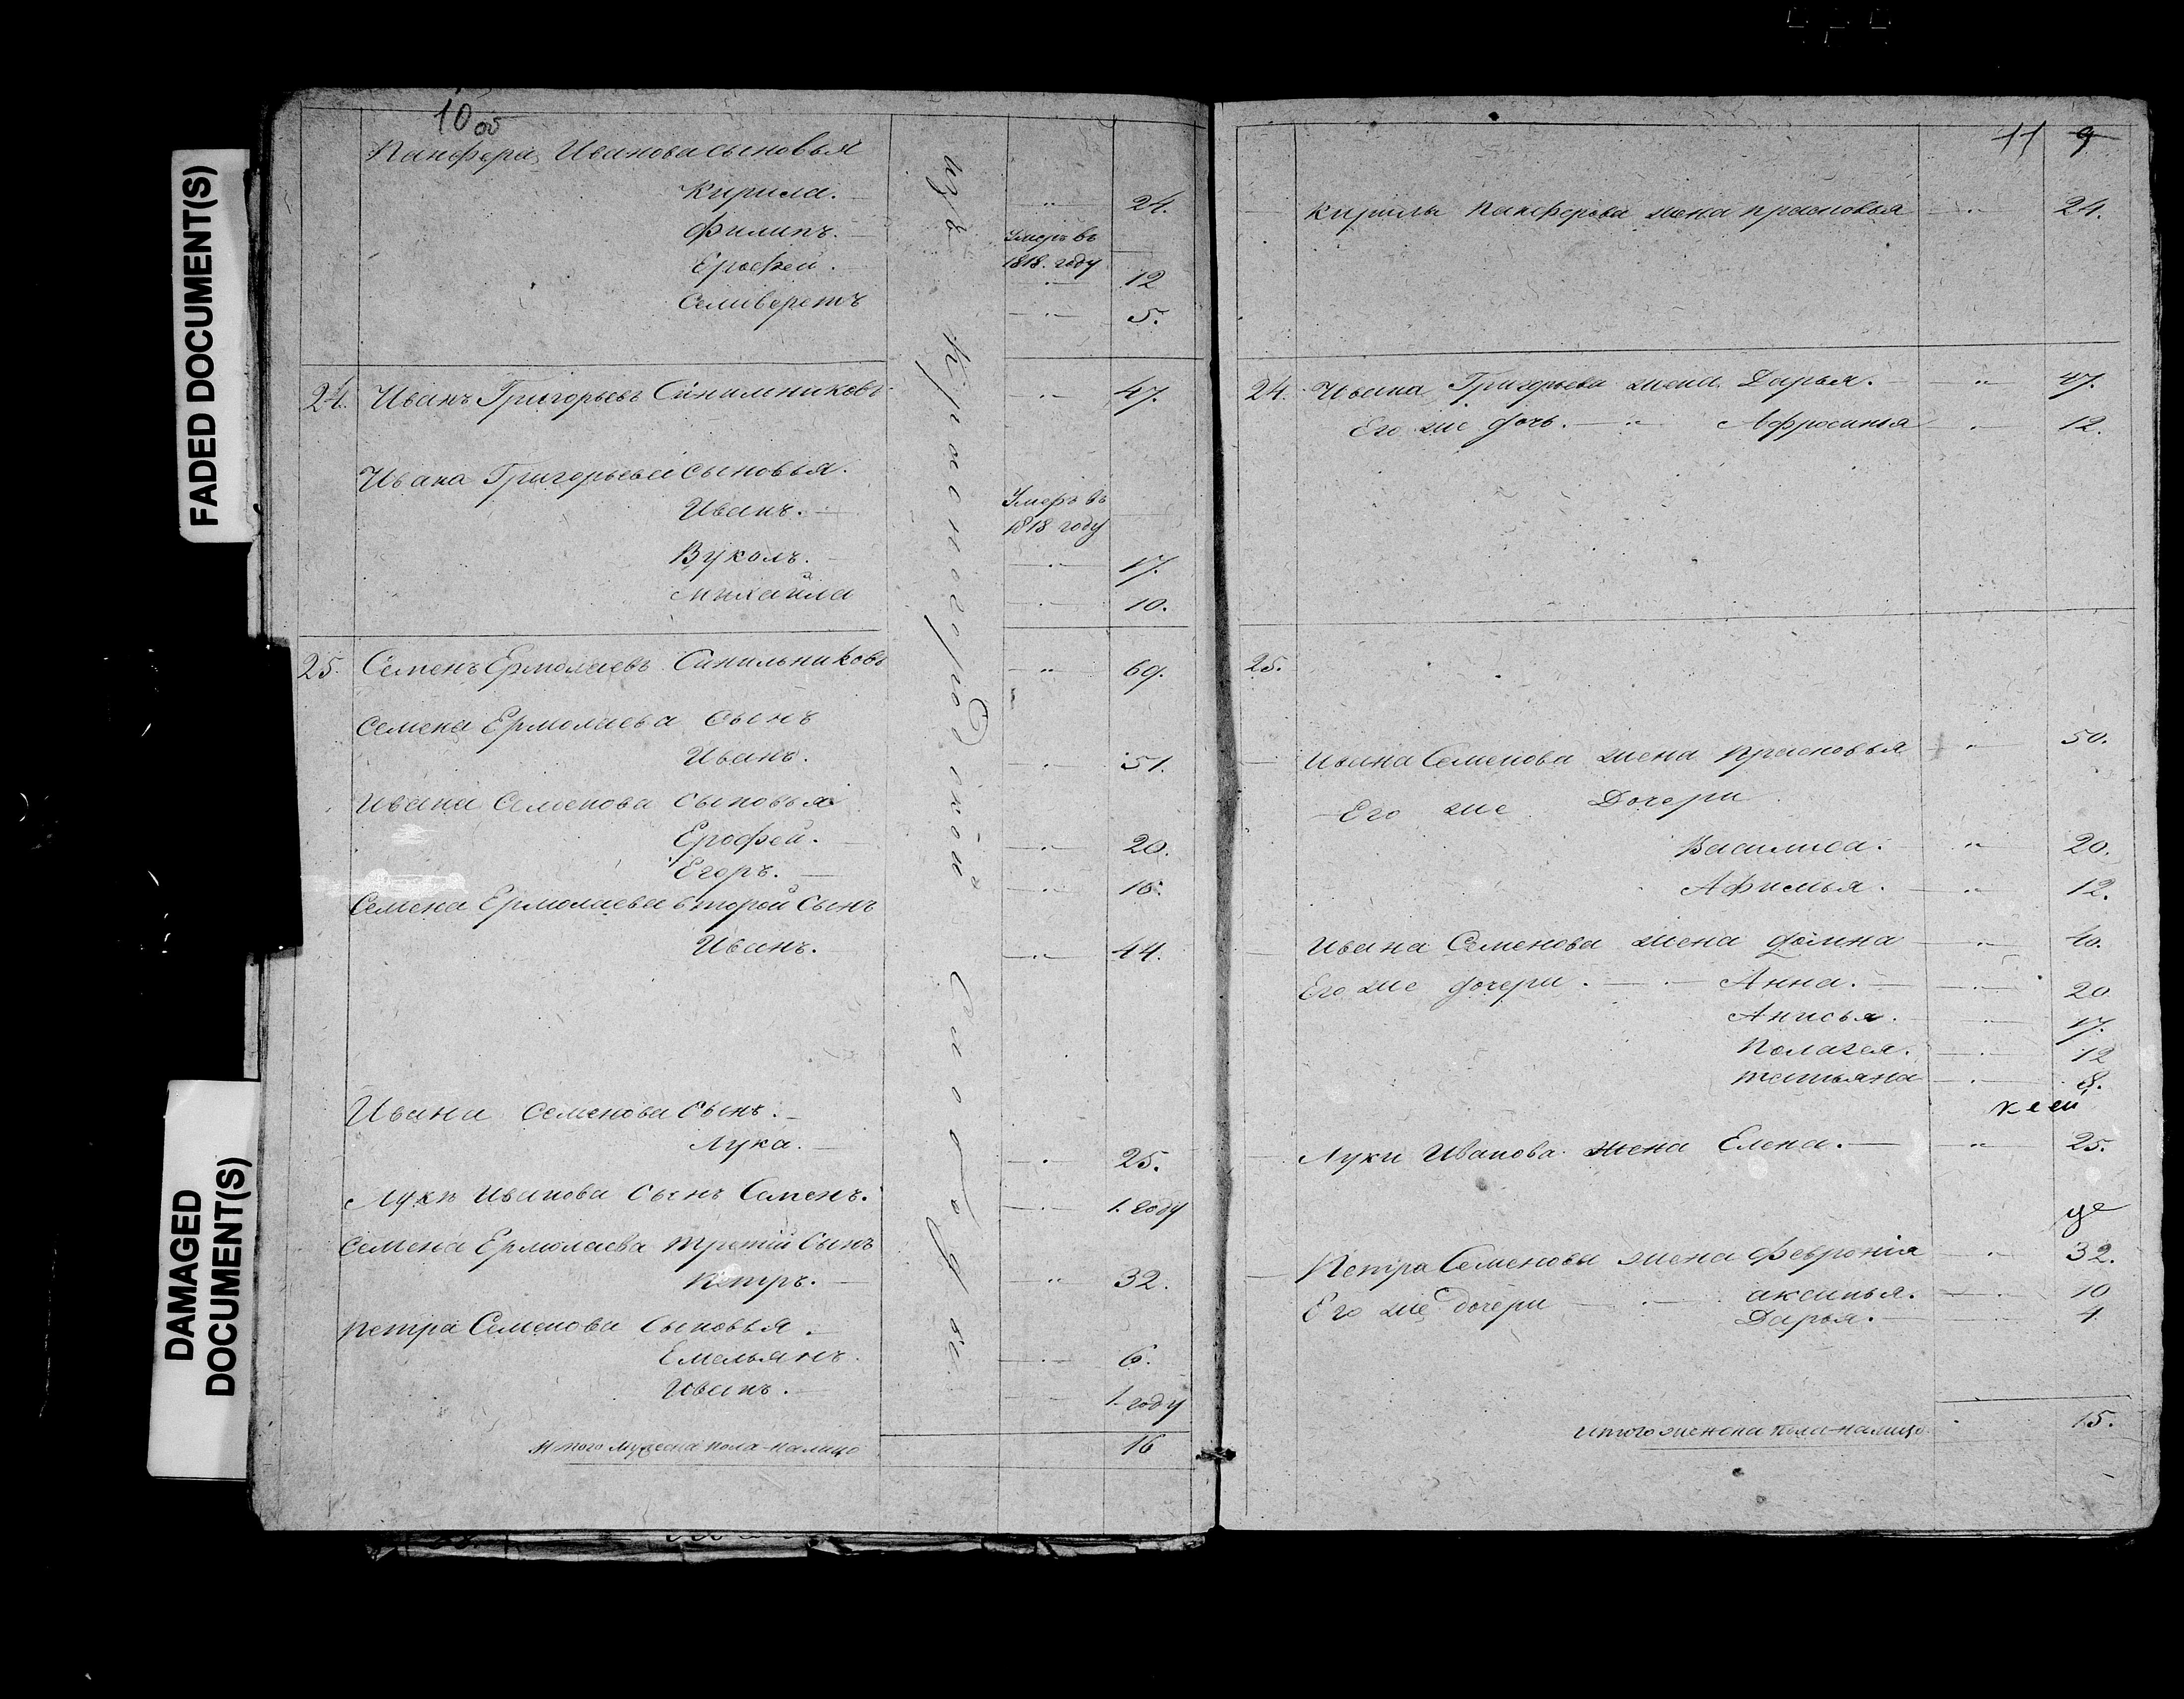 FADED DOCUMENT(S)
DAMAGED DOCUMENT(S)
10 об
Панфера Иванова сыновья
Кирила. 24.
Филипъ. Умеръ въ 1818. году
Ерофей. 12
Селиверстъ 5.
24. Иванъ Григорьевъ Синильниковъ 47.
Ивана Григорьева сыновья.
Иванъ. Умеръ въ 1818 году
Вуколъ. 17.
Михайла 10.
25. Семенъ Ермолаевъ Синильниковъ 69.
Семена Ермолаева сынъ
Иванъ. 51.
Ивана Семенова сыновья
Ерофей. 20.
Егоръ. 16.
Семена Ермолаева второй сынъ
Иванъ. 44.
Ивана Семенова сынъ.
Лука. 25.
Луки Иванова сынъ Семенъ. 1. году
Семена Ермолаева третий сынъ
Петръ. 32.
Петра Семенова сыновья.
Емельянъ. 6.
Иванъ. 1. году
Итого мужеска пола налицо 16
изъ Красногородской Слободы
11 9
Кирилы Панферова жена прасковья 24.
24. Ивана Григорьева жена Дарья. 47.
Его же дочь. Афросинья 12.
25.
Ивана Семенова жена прасковья 50.
Его же Дочери
Василиса. 20.
Афимья. 12.
Ивана Семенова жена домна 40.
Его же дочери. Анна. 20
Анисья. 17.
Полагея. 12
татьяна 8.
Луки Иванова жена Елена. 25.
Петра Семенова жена Феврония 32.
Его же дочери аксинья. 10
Дарья. 4
итого женска пола налицо 15.